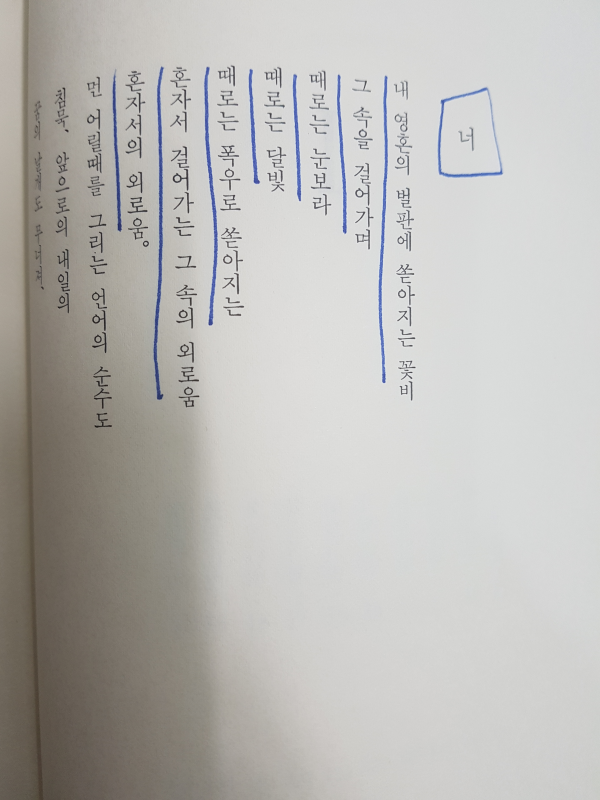 너
내 영혼의 벌판에 쏟아지는 꽃비
그 속을 걸어가며
때로는 눈보라
때로는 달빛
때로는 폭우로 쏟아지는
혼자서 걸어가는 그 속의 외로움
혼자서의 외로움。
먼 어릴때를 그리는 언어의 순수도
침묵、앞으로의 내일의
꿈의 날개도 무너져、